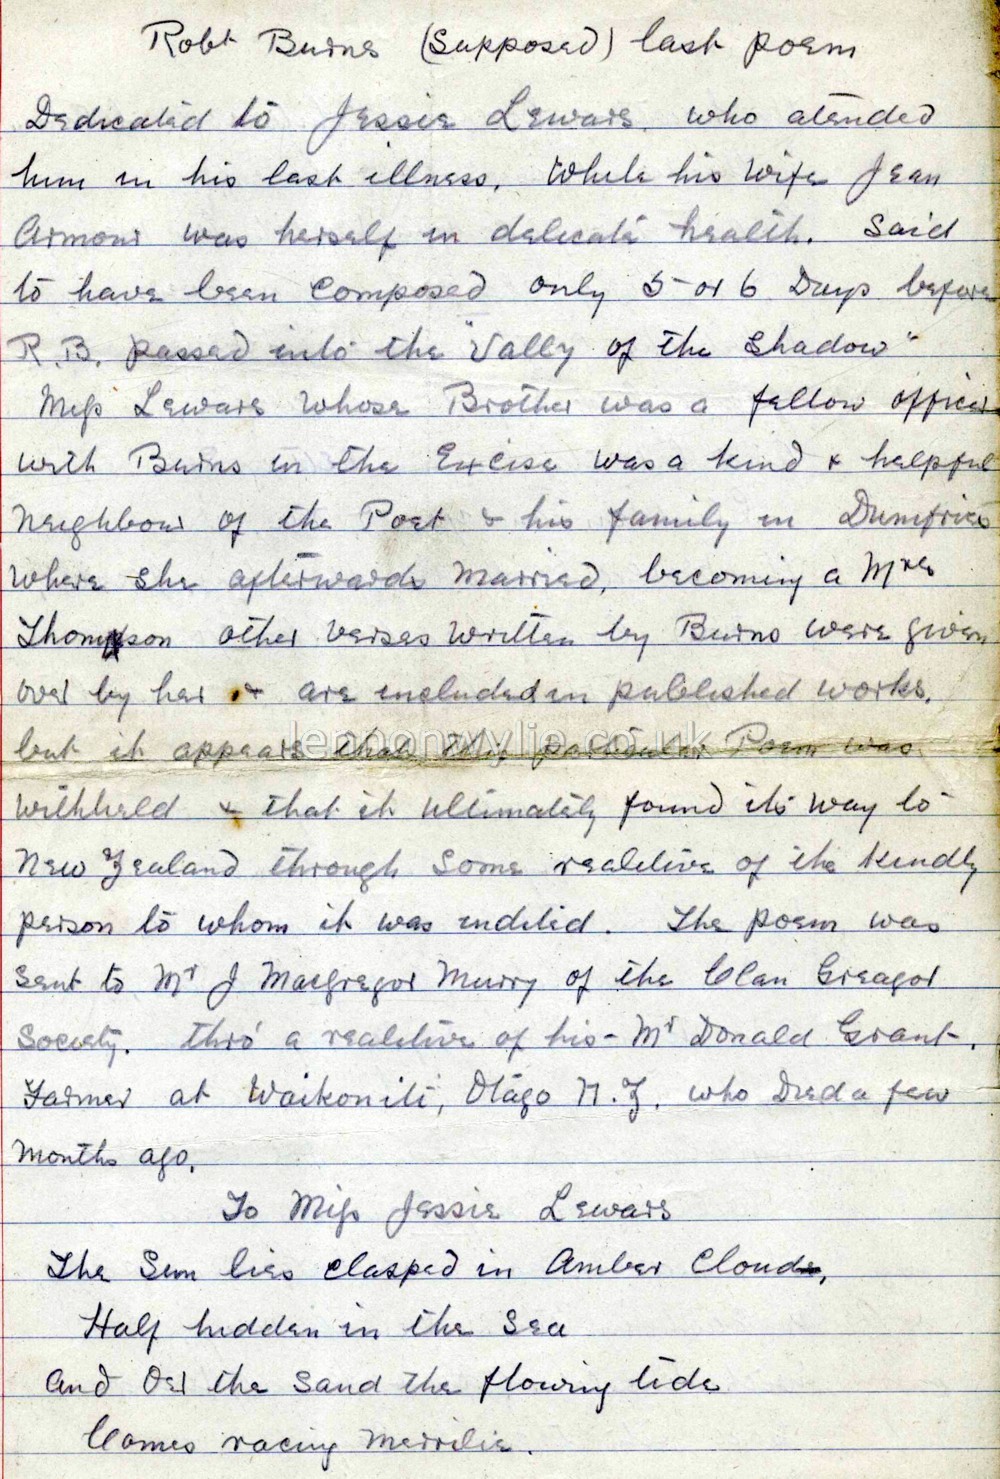 Robt Burns (Supposed) last poem
Dedicated to Jessie Lewars. who atended
him in his last illness. While his Wife Jean
Armour was herself in delicate health. Said
to have been Composed only 5 or 6 Days before
R.B. passed into the "Vally of the Shadow"
Miss Lewars Whose Brother was a fellow officer
with Burns in the Excise was a kind & helpful
Neighbour of the Poet & his family in Dumfries
Where She afterwards Married, becoming a Mrs
Thompson other verses written by Burns were given
over by her & are included in published works.
but it appears that this particular Poem was
lennonwylie.co.uk
Withheld & that it ultimately found its way to
New Zealand through Some realative of the kindly
person to whom it was indited. The poem was
Sent to Mr J Macgregor Murry of the Clan Greagor
Society. thro' a realative of his - Mr Donald Grant.
Farmer at Waikoniti, Otago N.Z. who Died a few
Months ago.
To Miss Jessie Lewars
The Sun lies clasped in Amber Clouds,
Half hidden in the Sea
And Oer the Sand the flowing tide
Comes racing Merrilie.